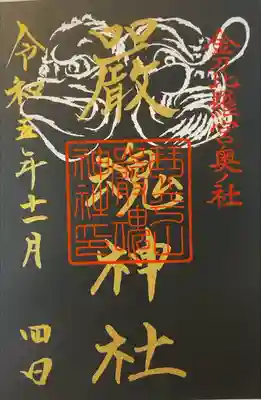 金刀比羅宮奥社
嚴魂神社
令和五年十一月 四日